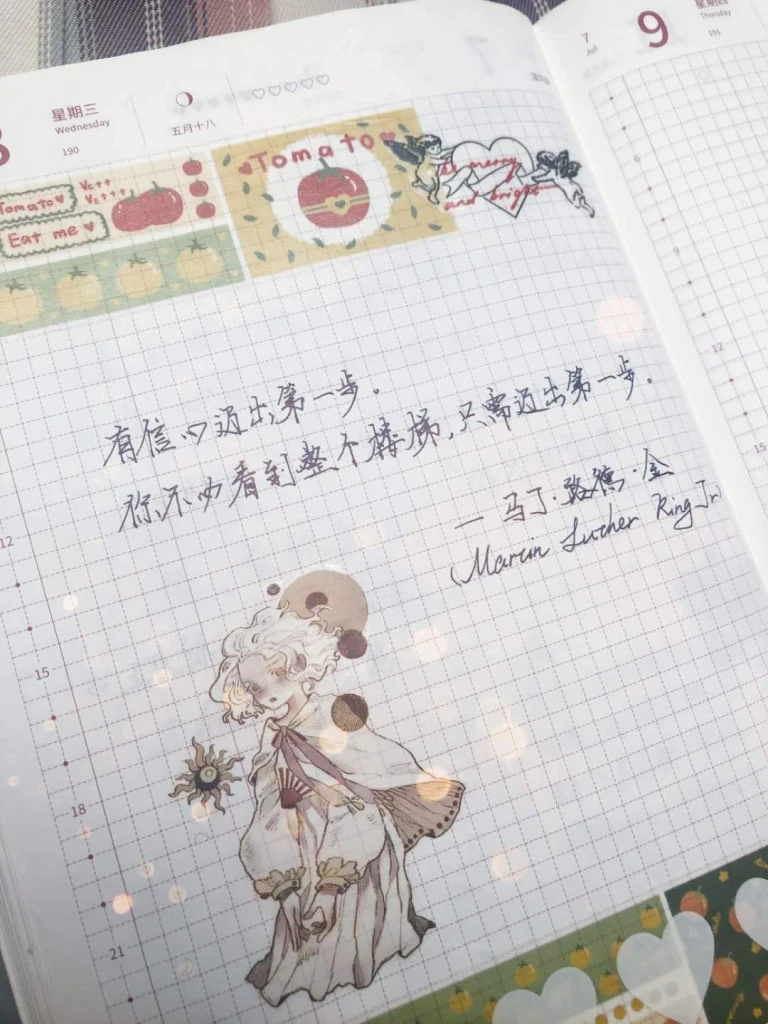 8
星期三
Wednesday
190
五月十八
7
Jul
9
Thursday
191
Tomato
Vc++
Vc+++
Eat me
Tomato
be merry
and bright
有信心迈出第一步。
你不必看到整个楼梯,只需迈出第一步。
— 马丁·路德·金
(Marcin Lucher King Jr
12
15
18
21
6
9
12
15